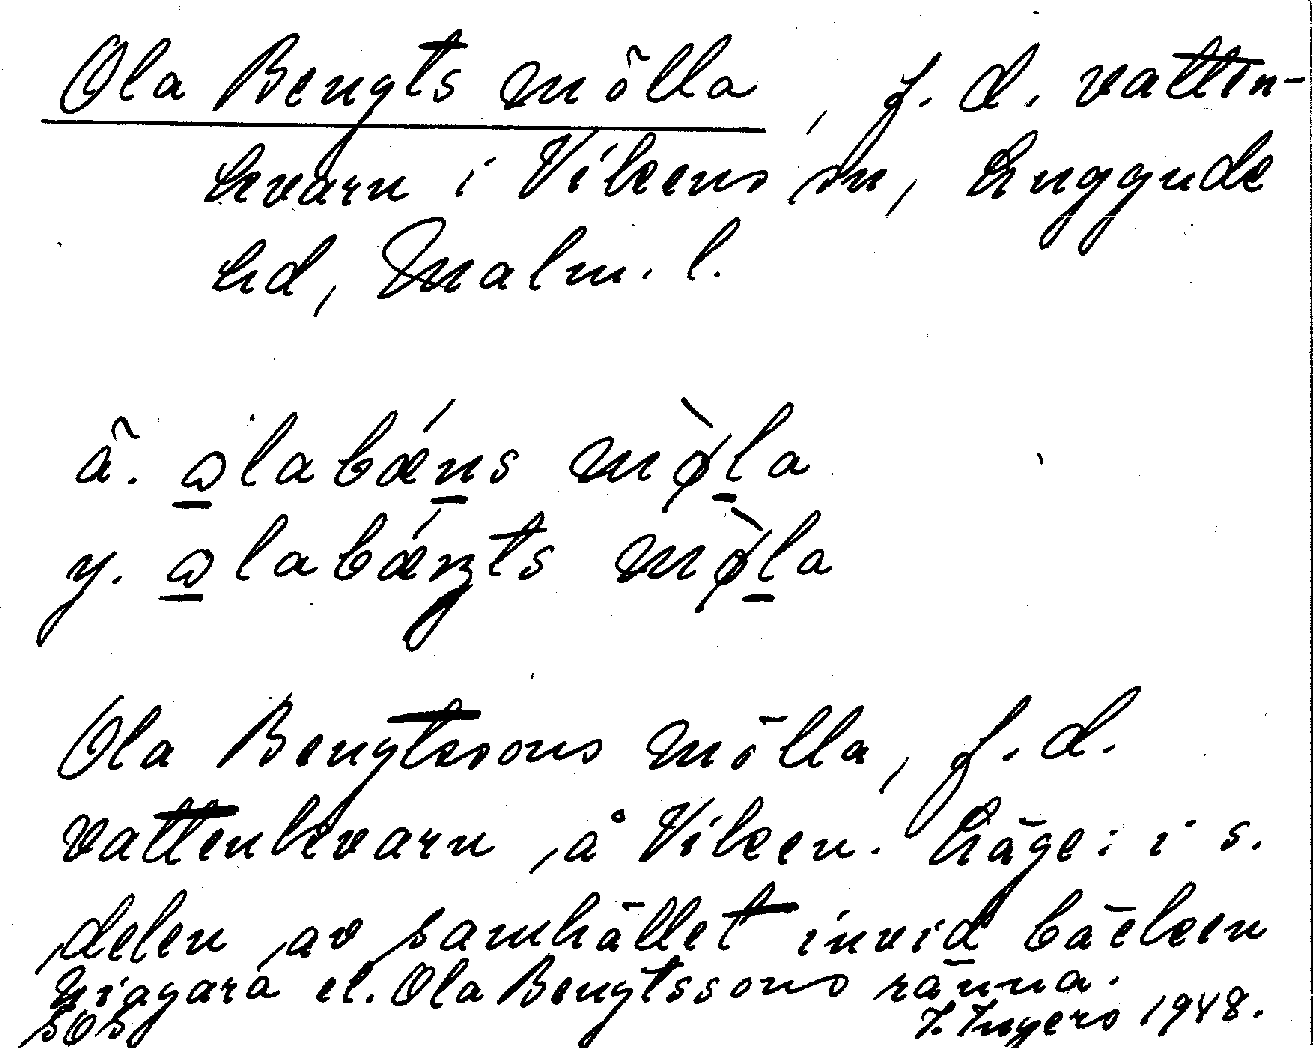 Ola Bengts mölla, f. d. vatten-
kvarn i Vikens sn, Luggude
hd, Malm. l.
ä. ɷlabǽns mø̀la
y. ɷlabǽŋts mø̀la
Ola Bengtssons mölla, f. d.
vattenkvarn å Viken. Läge: i s.
delen av samhället invid bäcken
Niagara el. Ola Bengtssons ränna.
SOS I. Ingers 1948.